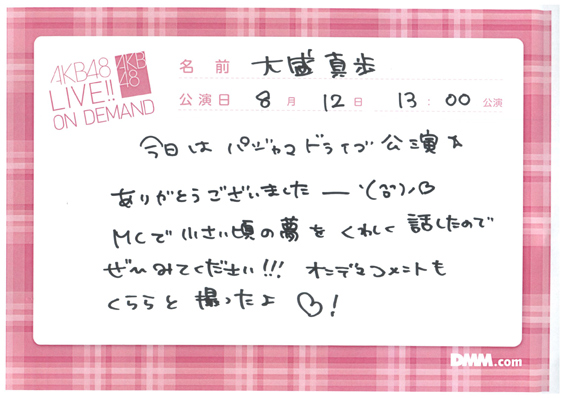 AKB48
LIVE!!
ON DEMAND
AKB
48
名前 大盛真歩
公演日 8月 12日 13:00 公演
今日は パジャマドライブ 公演☆
ありがとうございました ー ヽ(^o^)ノ♡
MCで 小さい頃の夢を くわしく 話したので
ぜひみてください!!! オンデマコメントも
くららと 撮ったよ ♡!
DMM.com